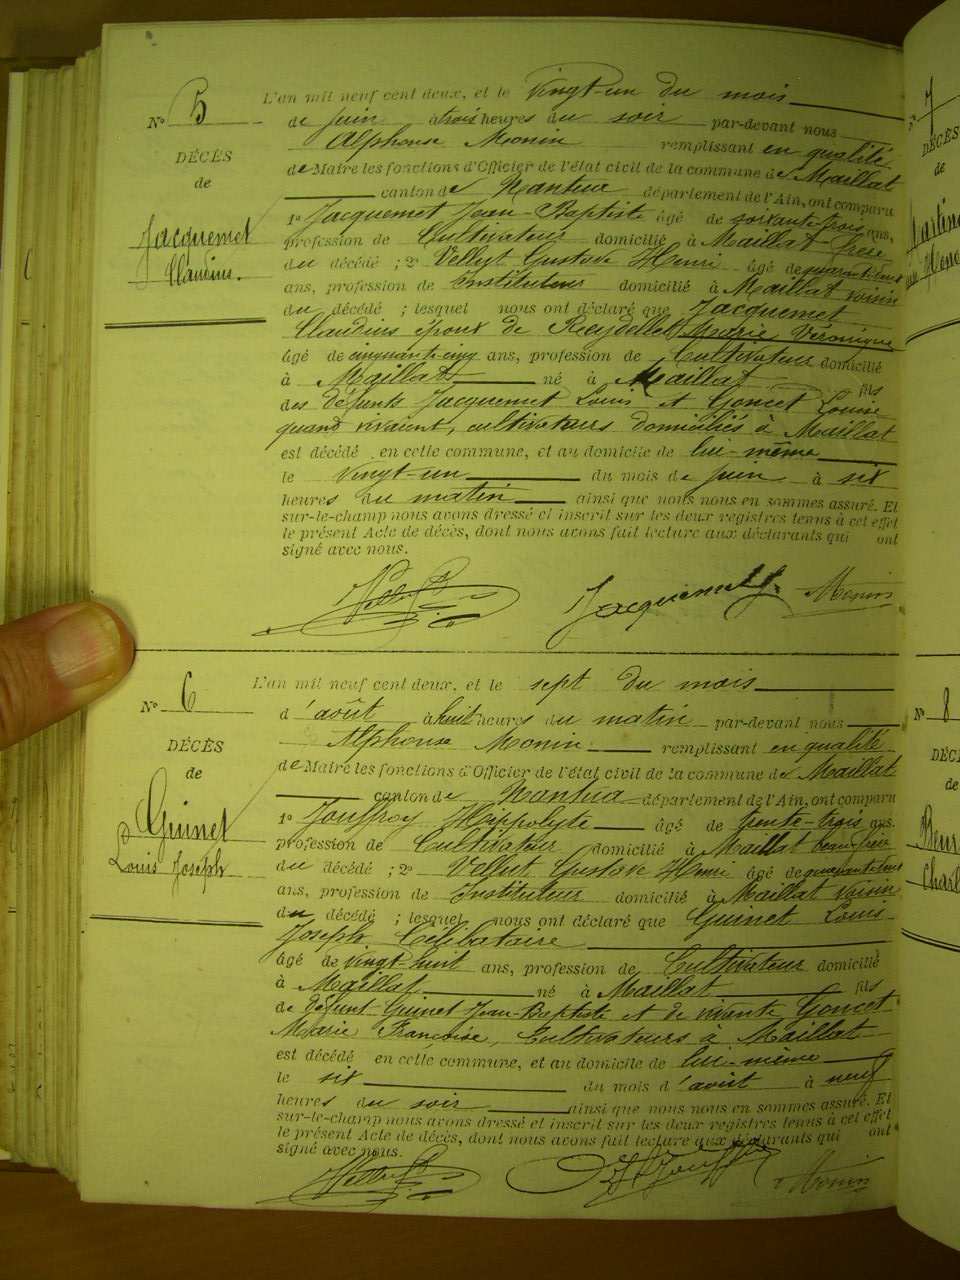 N° 5
DÉCÈS
de
Jacquemet
Claudius.
L'an mil neuf cent deux, et le Vingt-un du mois
de juin à trois heures du soir par-devant nous
Alphonse Monin remplissant en qualité
de Maire les fonctions d'Officier de l'état civil de la commune de Maillat
canton de Nantua département de l'Ain, ont comparu
1° Jacquemet Jean-Baptiste âgé de soixante-trois ans,
profession de Cultivateur domicilié à Maillat frère
du décédé ; 2° Vellut Gustave Henri âgé de quarante
ans, profession de Instituteur domicilié à Maillat voisin
du décédé ; lesquel nous ont déclaré que Jacquemet
Claudius époux de Marie Véronique
âgé de cinquante-cinq ans, profession de Cultivateur domicilié
à Maillat né à Maillat fils
des défunts Jacquemet Louis et Goncet Louise
quand vivaient, cultivateurs domiciliés à Maillat
est décédé en cette commune, et au domicile de lui-même
le Vingt-un du mois de juin à six
heures du matin ainsi que nous nous en sommes assuré. Et
sur-le-champ nous avons dressé et inscrit sur les deux registres tenus à cet effet
le présent Acte de décès, dont nous avons fait lecture aux déclarants qui ont
signé avec nous.
Jacquemet Monin
N° 6
DÉCÈS
de
Guinet
Louis Joseph
L'an mil neuf cent deux, et le sept du mois
d'août à huit heures du matin par-devant nous
Alphonse Monin remplissant en qualité
de Maire les fonctions d'Officier de l'état civil de la commune de Maillat
canton de Nantua département de l'Ain, ont comparu
1° Jouffroy Hippolyte âgé de trente-trois ans.
profession de Cultivateur domicilié à Maillat beau-frère
du décédé ; 2° Vellut Gustave Henri âgé de quarante
ans, profession de Instituteur domicilié à Maillat voisin
du décédé ; lesquel nous ont déclaré que Guinet Louis
Joseph Célibataire
âgé de vingt-huit ans, profession de Cultivateur domicilié
à Maillat né à Maillat fils
de défunt Guinet Jean-Baptiste et de vivante Goncet
Marie Françoise, Cultivateurs à Maillat
est décédé en cette commune, et au domicile de lui-même
le six du mois d'août à neuf
heures du soir ainsi que nous nous en sommes assuré. Et
sur-le-champ nous avons dressé et inscrit sur les deux registres tenus à cet effet
le présent Acte de décès, dont nous avons fait lecture aux déclarants qui ont
signé avec nous.
Jouffroy Monin
7
DÉCÈS
de
N° 8